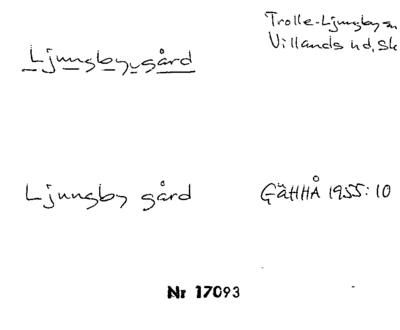 Ljungby gård
Trolle-Ljungby
Villands hd, Sk
Ljungby gård
GäHHÅ 1955:10
Nr 17093